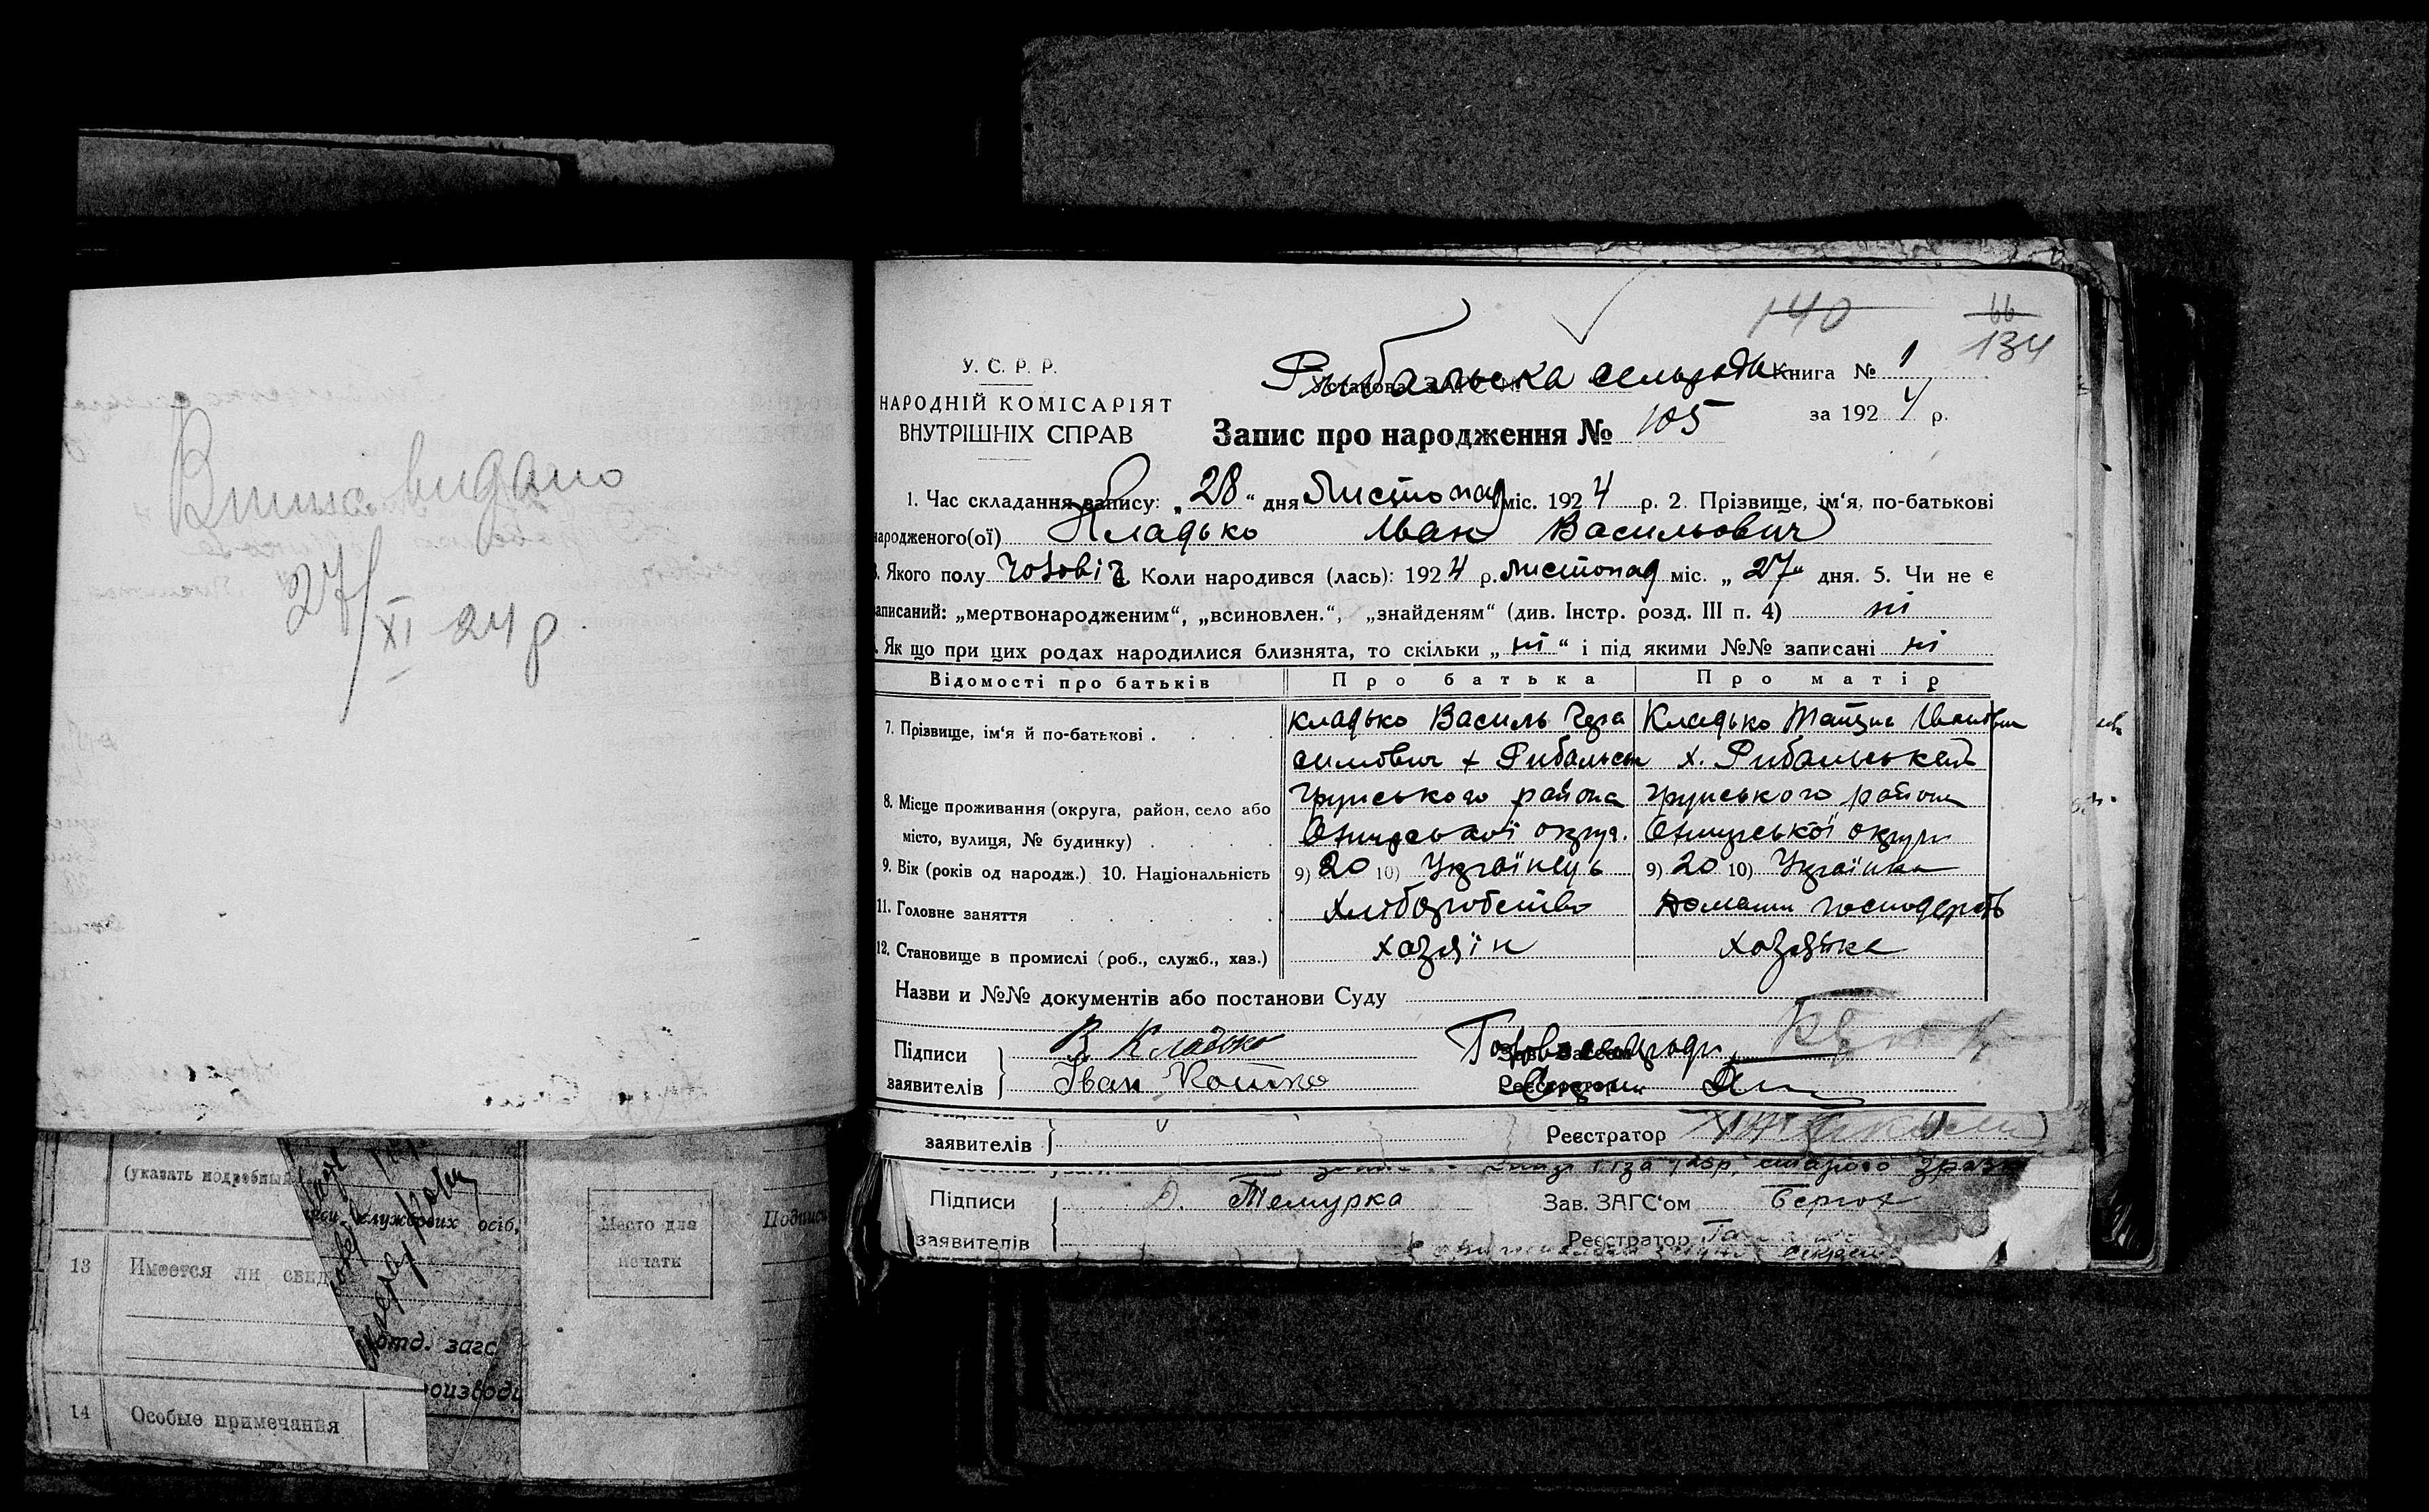 Випис видано
27/XI 24 р.
(указать подробный
служебових осіб,
13 Имеется ли свид
отд. загс
14 Особые примечания
Место для
печати
Подписи
140
66
134
У. С. Р. Р.
НАРОДНІЙ КОМІСАРІЯТ
ВНУТРІШНІХ СПРАВ
Рибальська сельрада Книга № 1
за 1924 р.
Запис про народження № 105
1. Час складання запису: „28“ дня Листопад міс. 1924 р. 2. Прізвище, ім‘я, по-батькові
народженого(ої) Кладько Іван Васильович
3. Якого полу Чоловіч Коли народився (лась): 1924 р. листопад міс. „27“ дня. 5. Чи не є
записаний: „мертвонародженим“, „всиновлен.“, „знайденям“ (див. Інстр. розд. III п. 4) ні
Як що при цих родах народилися близнята, то скільки „ні“ і під якими №№ записані ні
Відомості про батьків Про батька Про матір
7. Прізвище, ім‘я й по-батькові . . . . Кладько Василь Гера Кладько Татяна Ивановна
симович х Рибальськ х. Рибальський
8. Місце проживання (округа, район, село або Грунського района Грунського района
місто, вулиця, № будинку) . . . . округ. округи
9. Вік (років од народж.) 10. Національність 9) 20 10) Українець 9) 20 10) Українка
11. Головне заняття . . . . . Хліборобство Домашн господарств
12. Становище в промислі (роб., служб., хаз.) хазяїн хозяйка
Назви и №№ документів або постанови Суду
Підписи В Кладько Голова сельради
заявителів Іван
заявителів Реєстратор
Підписи Д. Темурка Зав. ЗАГС‘ом
заявителів Реєстратор